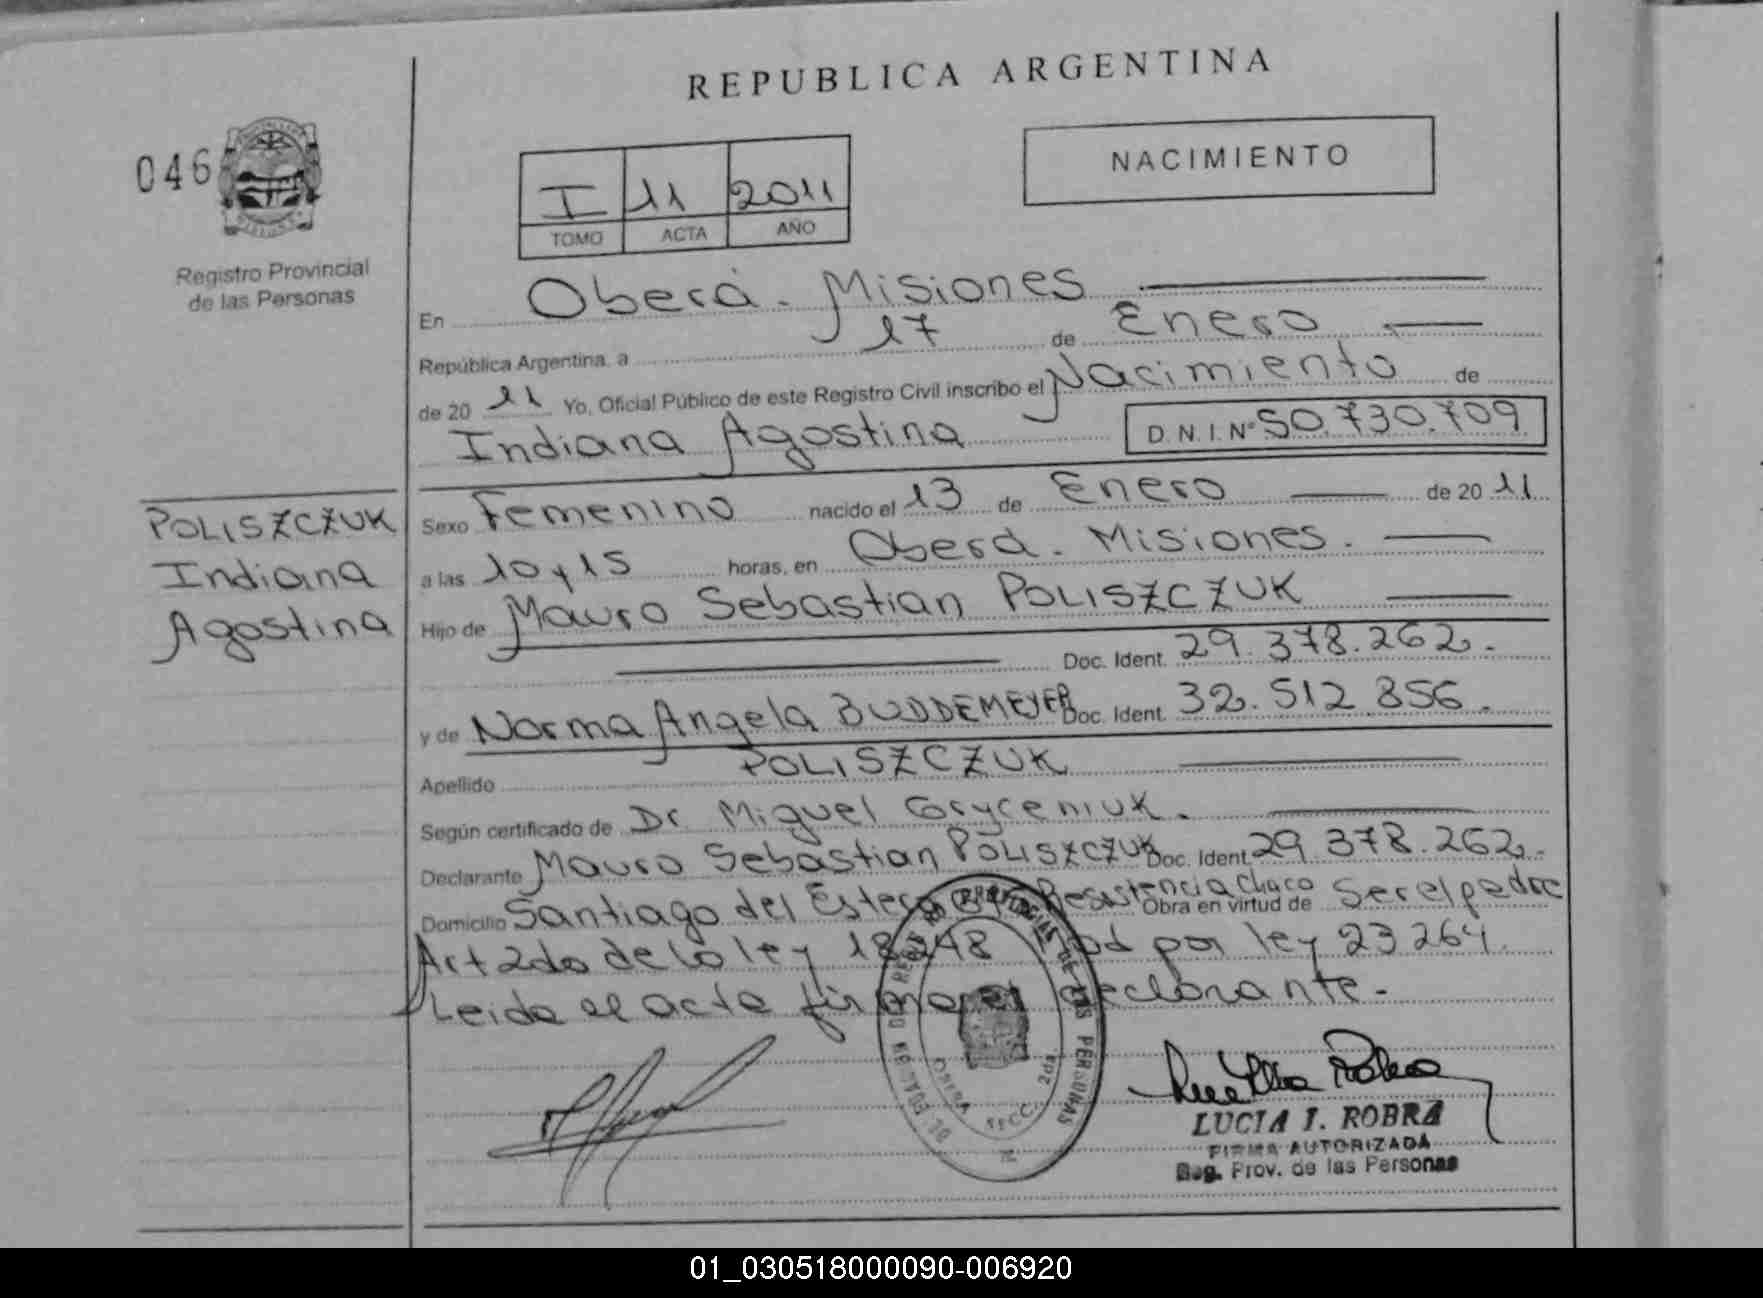 REPUBLICA ARGENTINA
046
NACIMIENTO
I 11 2011
TOMO ACTA AÑO
Registro Provincial
de las Personas
En Oberá - Misiones
República Argentina, a 17 de Enero
de 20 11 Yo, Oficial Público de este Registro Civil inscribo el Nacimiento de
Indiana Agostina D.N.I. Nº 50.730.709
POLISZCZUK
Indiana
Agostina
Sexo Femenino nacido el 13 de Enero de 20 11
a las 10 y 15 horas, en Oberá - Misiones.
Hijo de Mauro Sebastian POLISZCZUK
Doc. Ident. 29.378.262.
y de Norma Angela BUDDEMEYER Doc. Ident. 32.512.856.
Apellido POLISZCZUK
Según certificado de Dr Miguel Goryceniuk.
Declarante Mauro Sebastian POLISZCZUK Doc. Ident. 29.378.262.
Domicilio Santiago del Estero Resistencia Chaco Obra en virtud de Ser el padre
Art 2do de la ley 18248 Mod por ley 23264.
Leida el acta firma el declarante.
LUCIA I. ROBRA
FIRMA AUTORIZADA
Reg. Prov. de las Personas
01_030518000090-006920